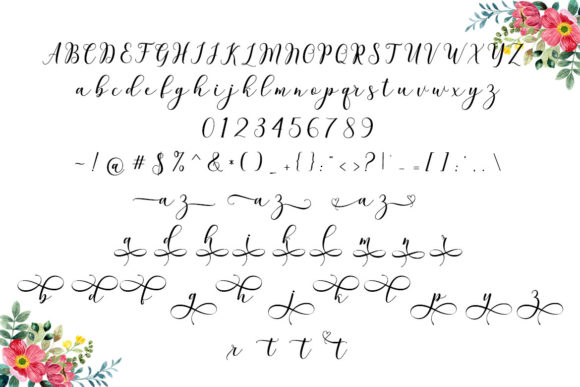 A B C D E F G H I J K L M N O P Q R S T U V W X Y Z
a b c d e f g h i j k l m n o p q r s t u v w x y z
0 1 2 3 4 5 6 7 8 9
~ ! @ # $ % ^ & * ( ) _ + { } : " < > ? | ` - = [ ] ; ' , . \
a z a z a z
a d h i k l m n r
b d f g h j k t p y z
r t t t